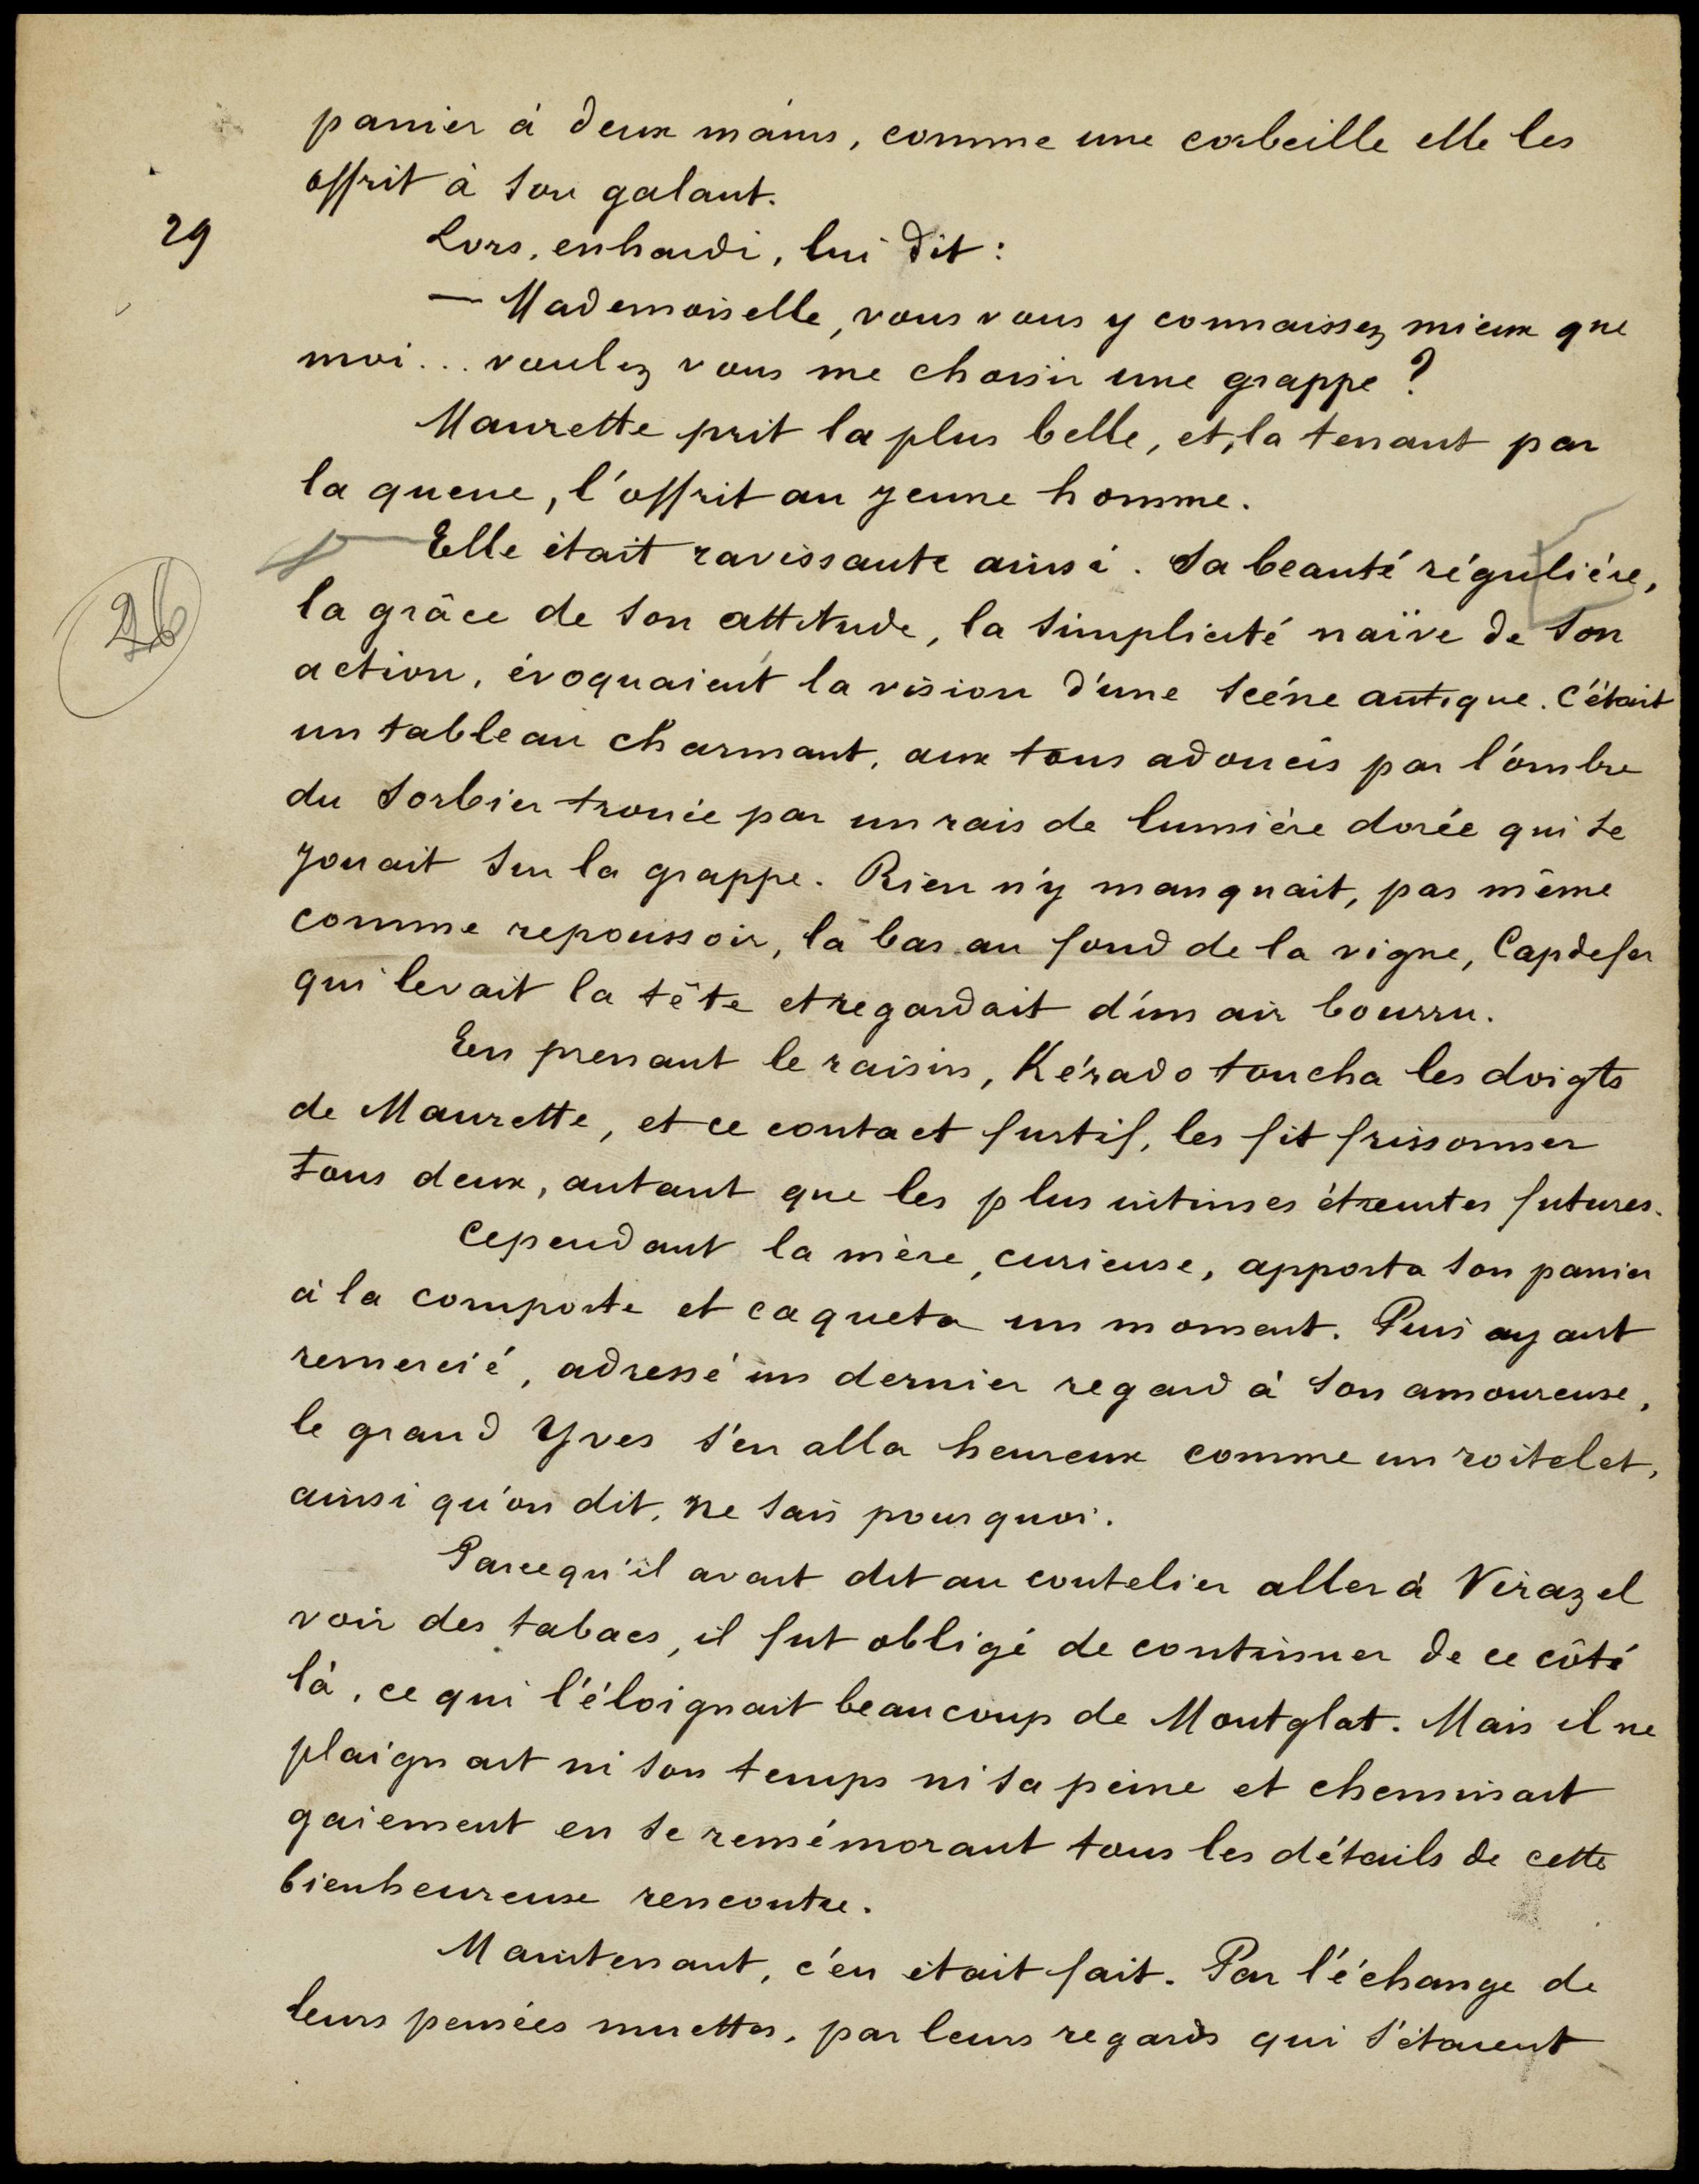 panier à deux mains, comme une corbeille elle les
offrit à son galant.
29
Lors, enhardi, lui dit :
— Mademoiselle, vous vous y connaissez mieux que
moi... voulez vous me choisir une grappe ?
Maurette prit la plus belle, et, la tenant par
la queue, l'offrit au jeune homme.
Elle était ravissante ainsi. Sa beauté régulière,
26
la grâce de son attitude, la simplicité naïve de son
action, évoquaient la vision d'une scène antique. C'était
un tableau charmant, aux tons adoucis par l'ombre
du sorbier trouée par un rais de lumière dorée qui se
jouait sur la grappe. Rien n'y manquait, pas même
comme repoussoir, là bas au fond de la vigne, Capdefer
qui levait la tête et regardait d'un air bourru.
En prenant le raisin, Kérado toucha les doigts
de Maurette, et ce contact furtif, les fit frissonner
tous deux, autant que les plus intimes étreintes futures.
Cependant la mère, curieuse, apporta son panier
à la comporte et caqueta un moment. Puis ayant
remercié, adressé un dernier regard à son amoureuse,
le grand Yves s'en alla heureux comme un roitelet,
ainsi qu'on dit, ne sais pourquoi.
Parcequ'il avait dit au coutelier aller à Virazel
voir des tabacs, il fut obligé de continuer de ce côté
là, ce qui l'éloignait beaucoup de Montglat. Mais il ne
plaignait ni son temps ni sa peine et cheminait
gaiement en se remémorant tous les détails de cette
bienheureuse rencontre.
Maintenant, c'en était fait. Par l'échange de
leurs pensées muettes, par leurs regards qui s'étaient